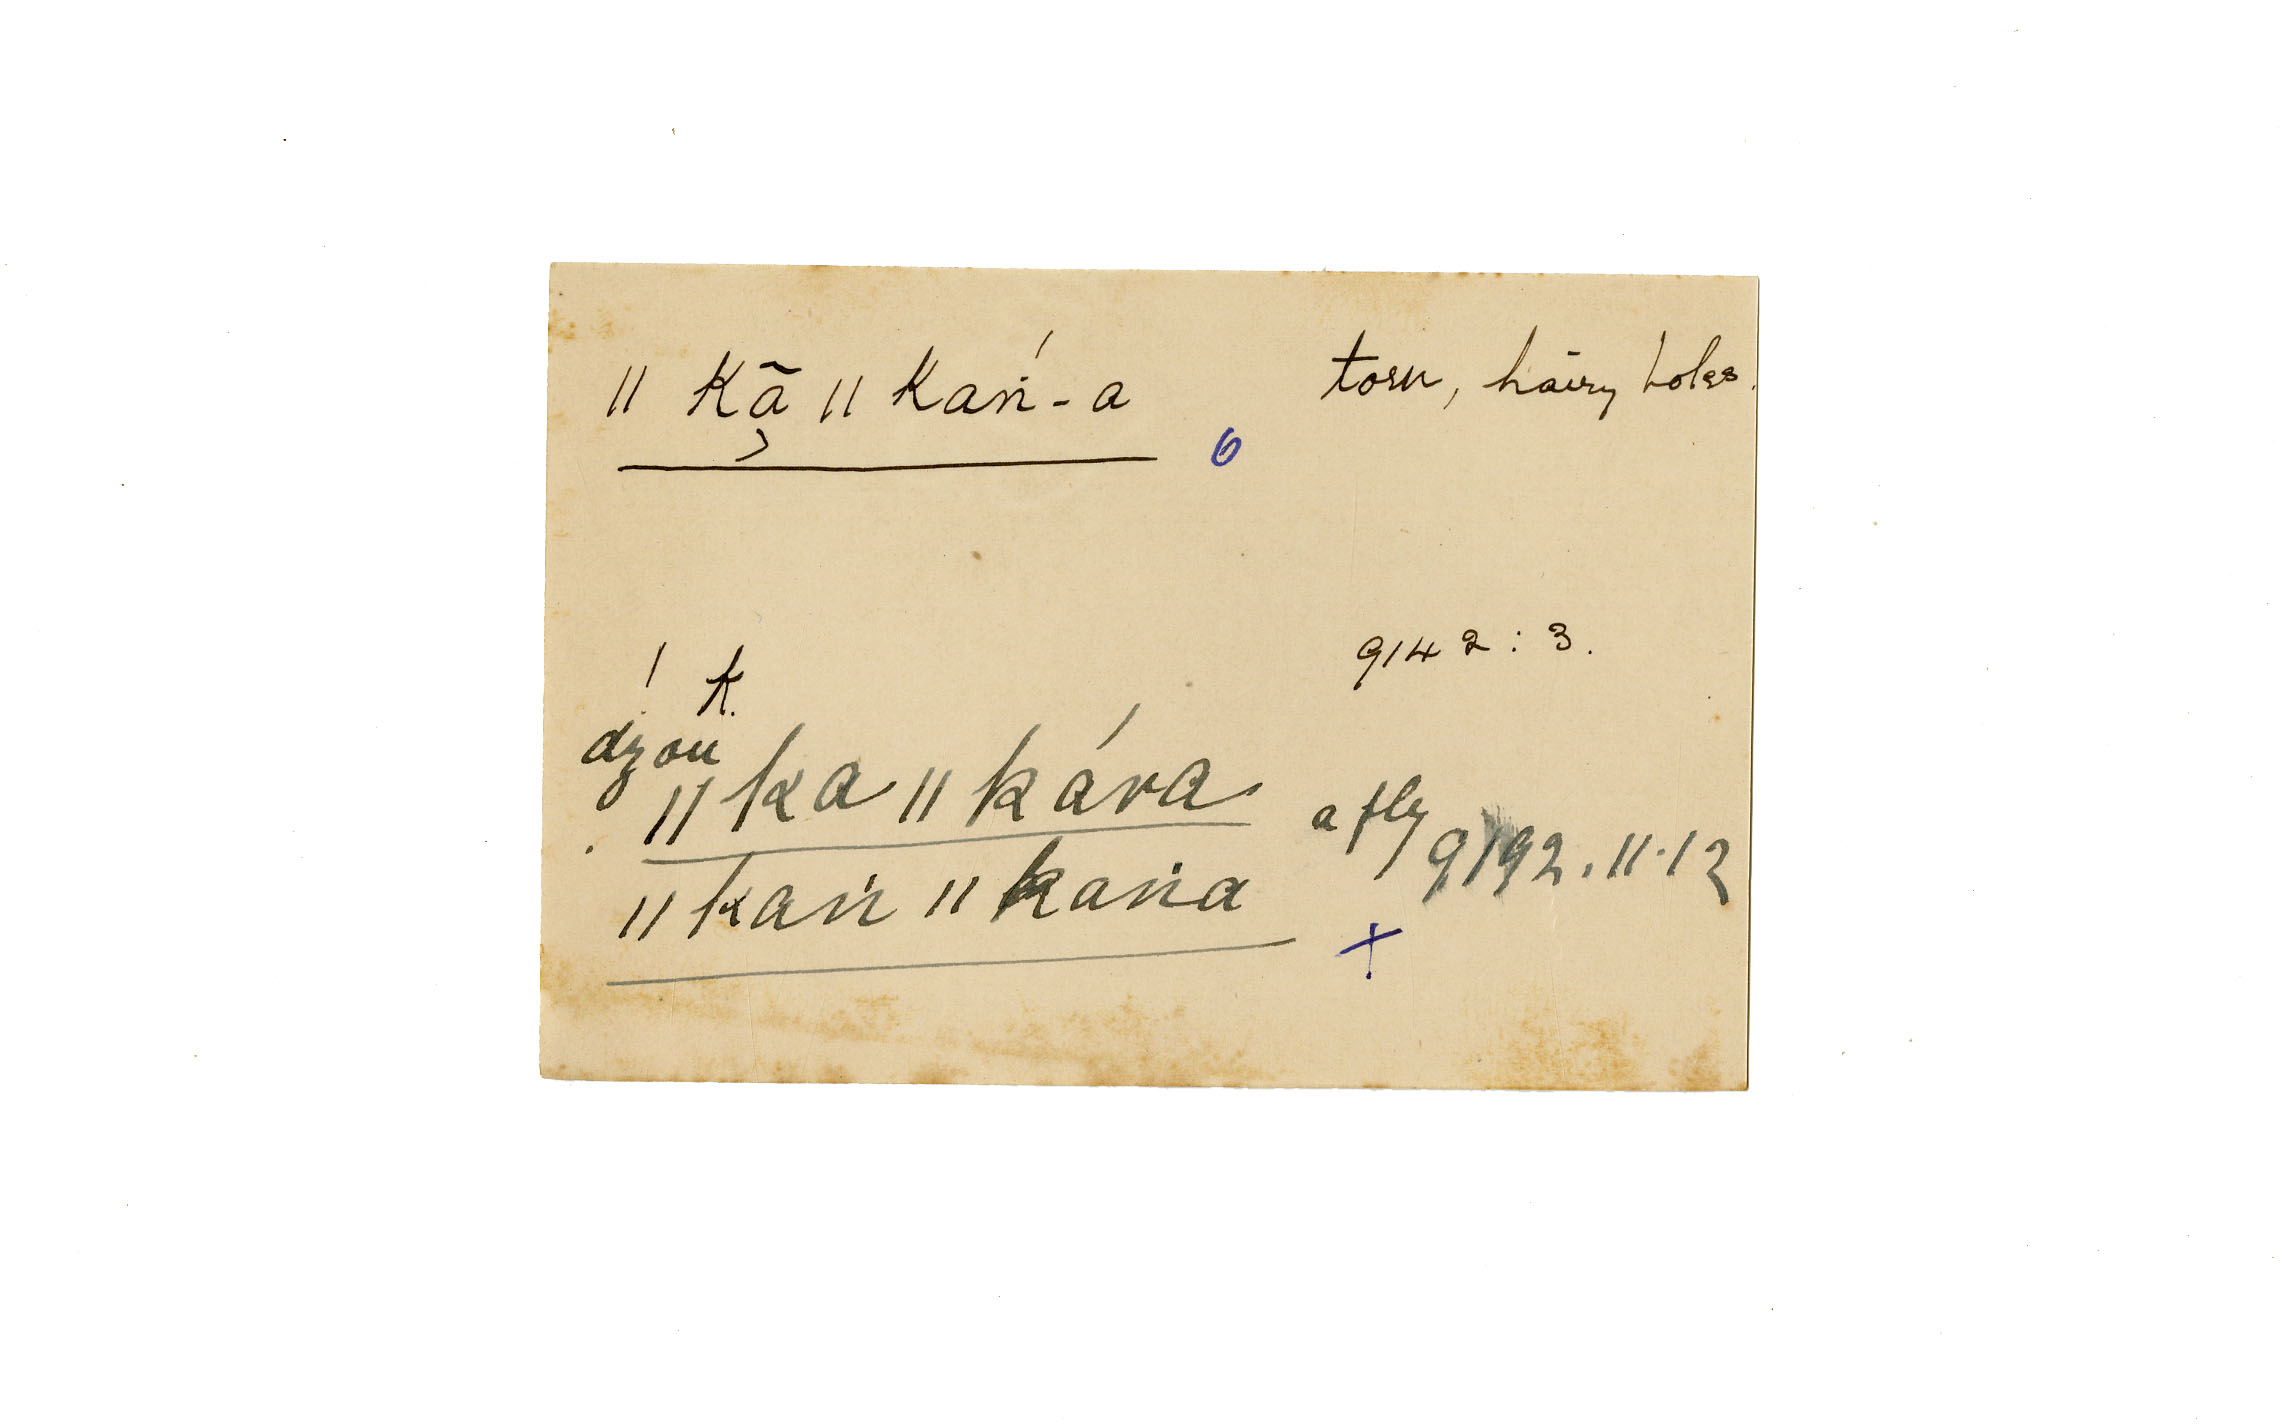 ǁ kã̹ ǁ kaṅ́-a torn, hairy holes.
6
9142 : 3.
! k.
ǁka ǁkára a fly
9192. 11.12
ǁkaṅ ǁkaṅa
+